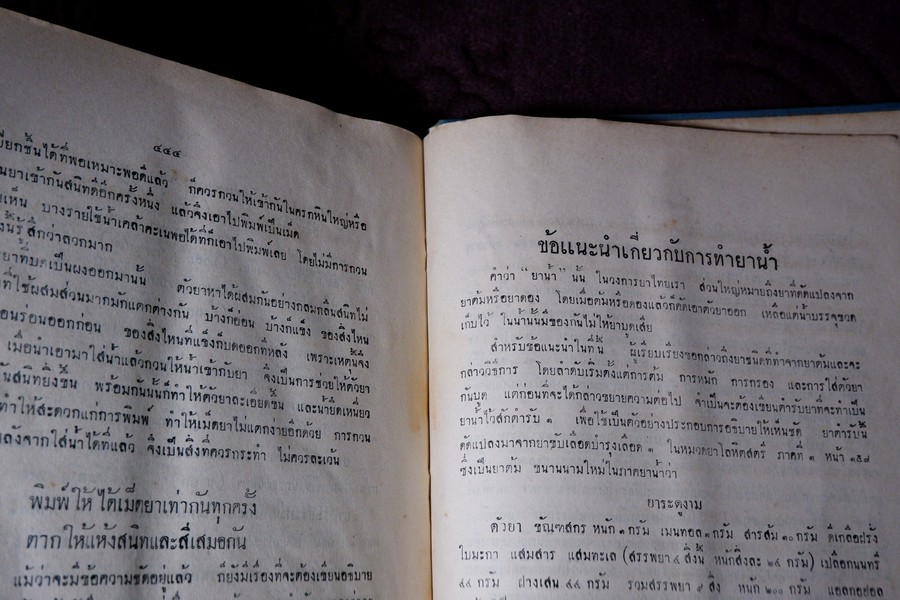 ๔๔๔
ขึ้นได้ที่พอเหมาะพอดีแล้ว ก็ควรกวนให้เข้ากันในครกหินใหญ่หรือ
ยาเข้ากันสนิทดีอีกครั้งหนึ่ง แล้วจึงเอาไปพิมพ์เป็นเม็ด
เห็น บางรายใช้น้ำเคล้าคะเนพอได้ที่ก็เอาไปพิมพ์เลย โดยไม่มีการกวน
รู้สึกว่าลวกมาก
ยาที่บดเป็นผงออกมานั้น ตัวยาหาได้ผสมกันอย่างกลมกลืนสนิทไม่
ที่ใช้ผสมส่วนมากมักแตกต่างกัน บ้างก็อ่อน บ้างก็แข็ง ของสิ่งไหน
ร่อนออกก่อน ของสิ่งไหนที่แข็งก็บดออกทีหลัง เพราะเหตุนี้จึง
เมื่อนำเอามาใส่น้ำแล้วกวนให้น้ำเข้ากับยา จึงเป็นการช่วยให้ตัวยา
สนิทยิ่งขึ้น พร้อมกันนั้นก็ทำให้ตัวยาละเอียดขึ้น และน้ำยึดเหนี่ยว
ทำให้สะดวกแก่การพิมพ์ ทำให้เม็ดยาไม่แตกง่ายอีกด้วย การกวน
หลังจากใส่น้ำได้ที่แล้ว จึงเป็นสิ่งที่ควรกระทำ ไม่ควรละเว้น
พิมพ์ให้ได้เม็ดยาเท่ากันทุกครั้ง
ตากให้แห้งสนิทและสีเสมอกัน
แม้ว่าจะมีข้อความชัดอยู่แล้ว ก็ยังมีเรื่องที่จะต้องเขียนอธิบาย
ข้อแนะนำเกี่ยวกับการทำยาน้ำ
คำว่า “ยาน้ำ” นั้น ในวงการยาไทยเรา ส่วนใหญ่หมายถึงยาที่ดัดแปลงจาก
ยาต้มหรือยาดอง โดยเมื่อต้มหรือดองแล้วก็คัดเอาตัวยาออก เหลือแต่น้ำบรรจุขวด
เก็บไว้ ในน้ำนั้นมีของกันไม่ให้ยาบูดเสีย
สำหรับข้อแนะนำในที่นี้ ผู้เรียบเรียงขอกล่าวถึงยาชนิดที่ทำจากยาต้มและจะ
กล่าววิธีการ โดยลำดับเริ่มตั้งแต่การต้ม การหมัก การกรอง และการใส่ตัวยา
กันบูด แต่ก่อนที่จะได้กล่าวขยายความต่อไป จำเป็นจะต้องเขียนตำรับยาที่จะทำเป็น
ยาน้ำไว้สักตำรับ ๑ เพื่อใช้เป็นตัวอย่างประกอบการอธิบายให้เห็นชัด ยาตำรับนี้
ดัดแปลงมาจากยาขับเลือดบำรุงเลือด ๑ ในหมวดยาโลหิตสตรี ภาคที่ ๑ หน้า ๑๕๘
ซึ่งเป็นยาต้ม ขนานนามใหม่ในภาคยาน้ำว่า
ยาระดูงาม
ตัวยา ชัณฑสกร หนัก ๑ กรัม เมนทอล ๑ กรัม สารส้ม ๑๐ กรัม ดีเกลือฝรั่ง
ใบมะกา แสมสาร แสมทะเล (สรรพยา ๔ สิ่งนี้ หนักสิ่งละ ๒๕ กรัม) เปลือกนนทรี
๔๔ กรัม ฝางเสน ๔๔ กรัม รวมสรรพยา ๙ สิ่ง หนัก ๒๐๐ กรัม แอลกอฮอล